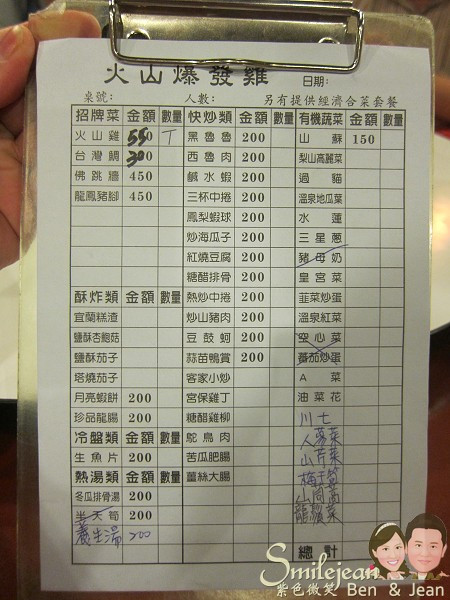 火山爆發雞 日期:
桌號: 人數: 另有提供經濟合菜套餐
招牌菜 金額 數量 快炒類 金額 數量 有機蔬菜 金額 數量
火山雞 550 丅 黑魯魯 200 山蘇 150
台灣鯛 300 西魯肉 200 梨山高麗菜
佛跳牆 450 鹹水蝦 200 過貓
龍鳳豬腳 450 三杯中捲 200 溫泉地瓜葉
鳳梨蝦球 200 水蓮
炒海瓜子 200 三星蔥
紅燒豆腐 200 豬母奶
糖醋排骨 200 皇宮菜
酥炸類 金額 數量 熱炒中捲 200 韮菜炒蛋
宜蘭糕渣 炒山豬肉 200 溫泉紅菜
鹽酥杏鮑菇 豆鼓蚵 200 空心菜
鹽酥茄子 蒜苗鴨賞 200 蕃茄炒蛋
塔燒茄子 客家小炒 A菜
月亮蝦餅 200 宮保雞丁 油菜花
珍品龍腸 200 糖醋雞柳 川七
冷盤類 金額 數量 鴕鳥肉 人蔘菜
生魚片 200 苦瓜肥腸 山芹菜
熱湯類 金額 數量 薑絲大腸
冬瓜排骨湯 200 山茼蒿
半天筍 200 龍鬚菜
養生湯 200
總計
Smilejean
紫色微笑 Ben & Jean